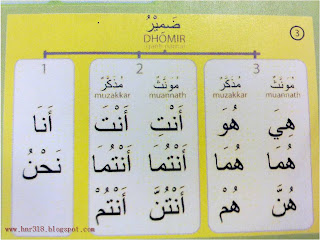 ضَمِيْرٌ
DHOMIR
3
1
2
3
مُذَكَّرٌ
muzakkar
مُؤَنَّثٌ
muannath
مُذَكَّرٌ
muzakkar
مُؤَنَّثٌ
muannath
أَنَا
نَحْنُ
أَنْتَ
أَنْتُمَا
أَنْتُمْ
أَنْتِ
أَنْتُمَا
أَنْتُنَّ
هُوَ
هُمَا
هُمْ
هِيَ
هُمَا
هُنَّ
www.har310.blogspot.com